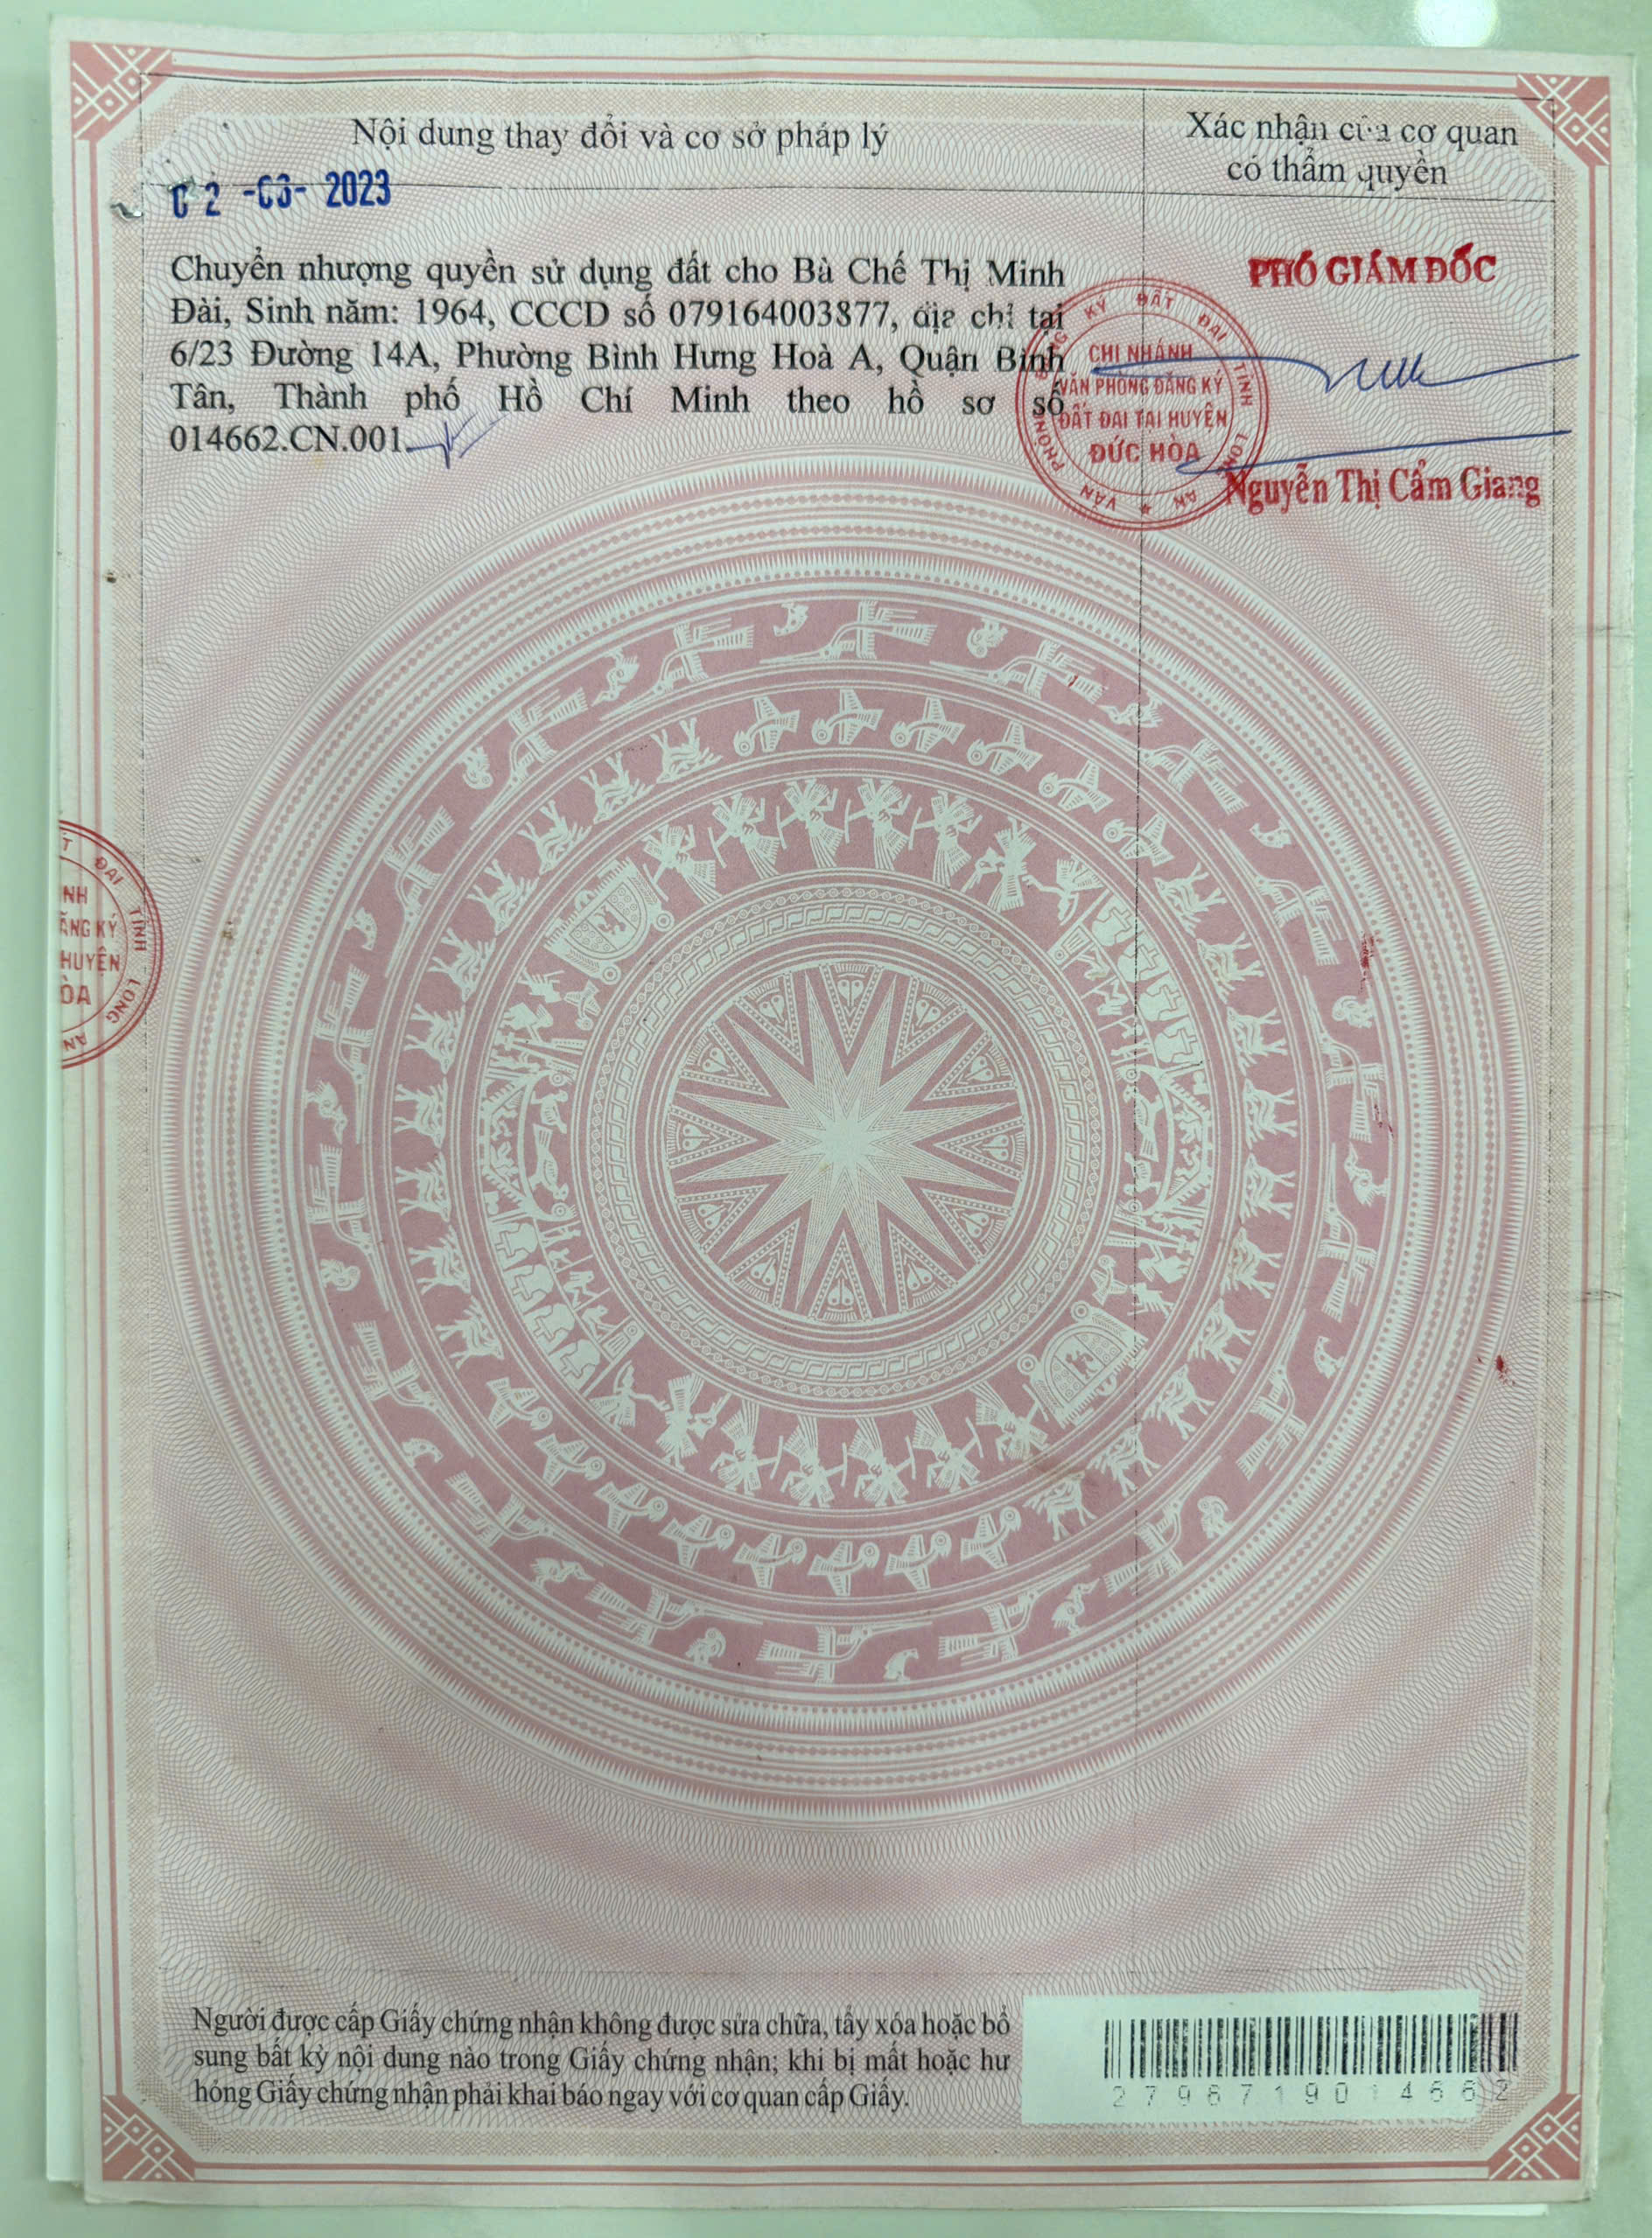 Nội dung thay đổi và cơ sở pháp lý
Xác nhận của cơ quan
có thẩm quyền
2023
Chuyển nhượng quyền sử dụng đất cho Bà Chế Thị Minh
Đài, Sinh năm: 1964, CCCD số 079164003877, địa chỉ tại
6/23 Đường 14A, Phường Bình Hưng Hoà A, Quận Bình
Tân, Thành phố Hồ Chí Minh theo hồ sơ số
014662.CN.001.
PHÓ GIÁM ĐỐC
VĂN PHÒNG ĐĂNG KÝ ĐẤT ĐAI TỈNH LONG AN
CHI NHÁNH
VĂN PHÒNG ĐĂNG KÝ
ĐẤT ĐAI TẠI HUYỆN
ĐỨC HÒA
Nguyễn Thị Cẩm Giang
T ĐAI TỈNH LONG AN
NH
ĂNG KÝ
HUYỆN
ÒA
Người được cấp Giấy chứng nhận không được sửa chữa, tẩy xóa hoặc bổ
sung bất kỳ nội dung nào trong Giấy chứng nhận; khi bị mất hoặc hư
hỏng Giấy chứng nhận phải khai báo ngay với cơ quan cấp Giấy.
2796719014662